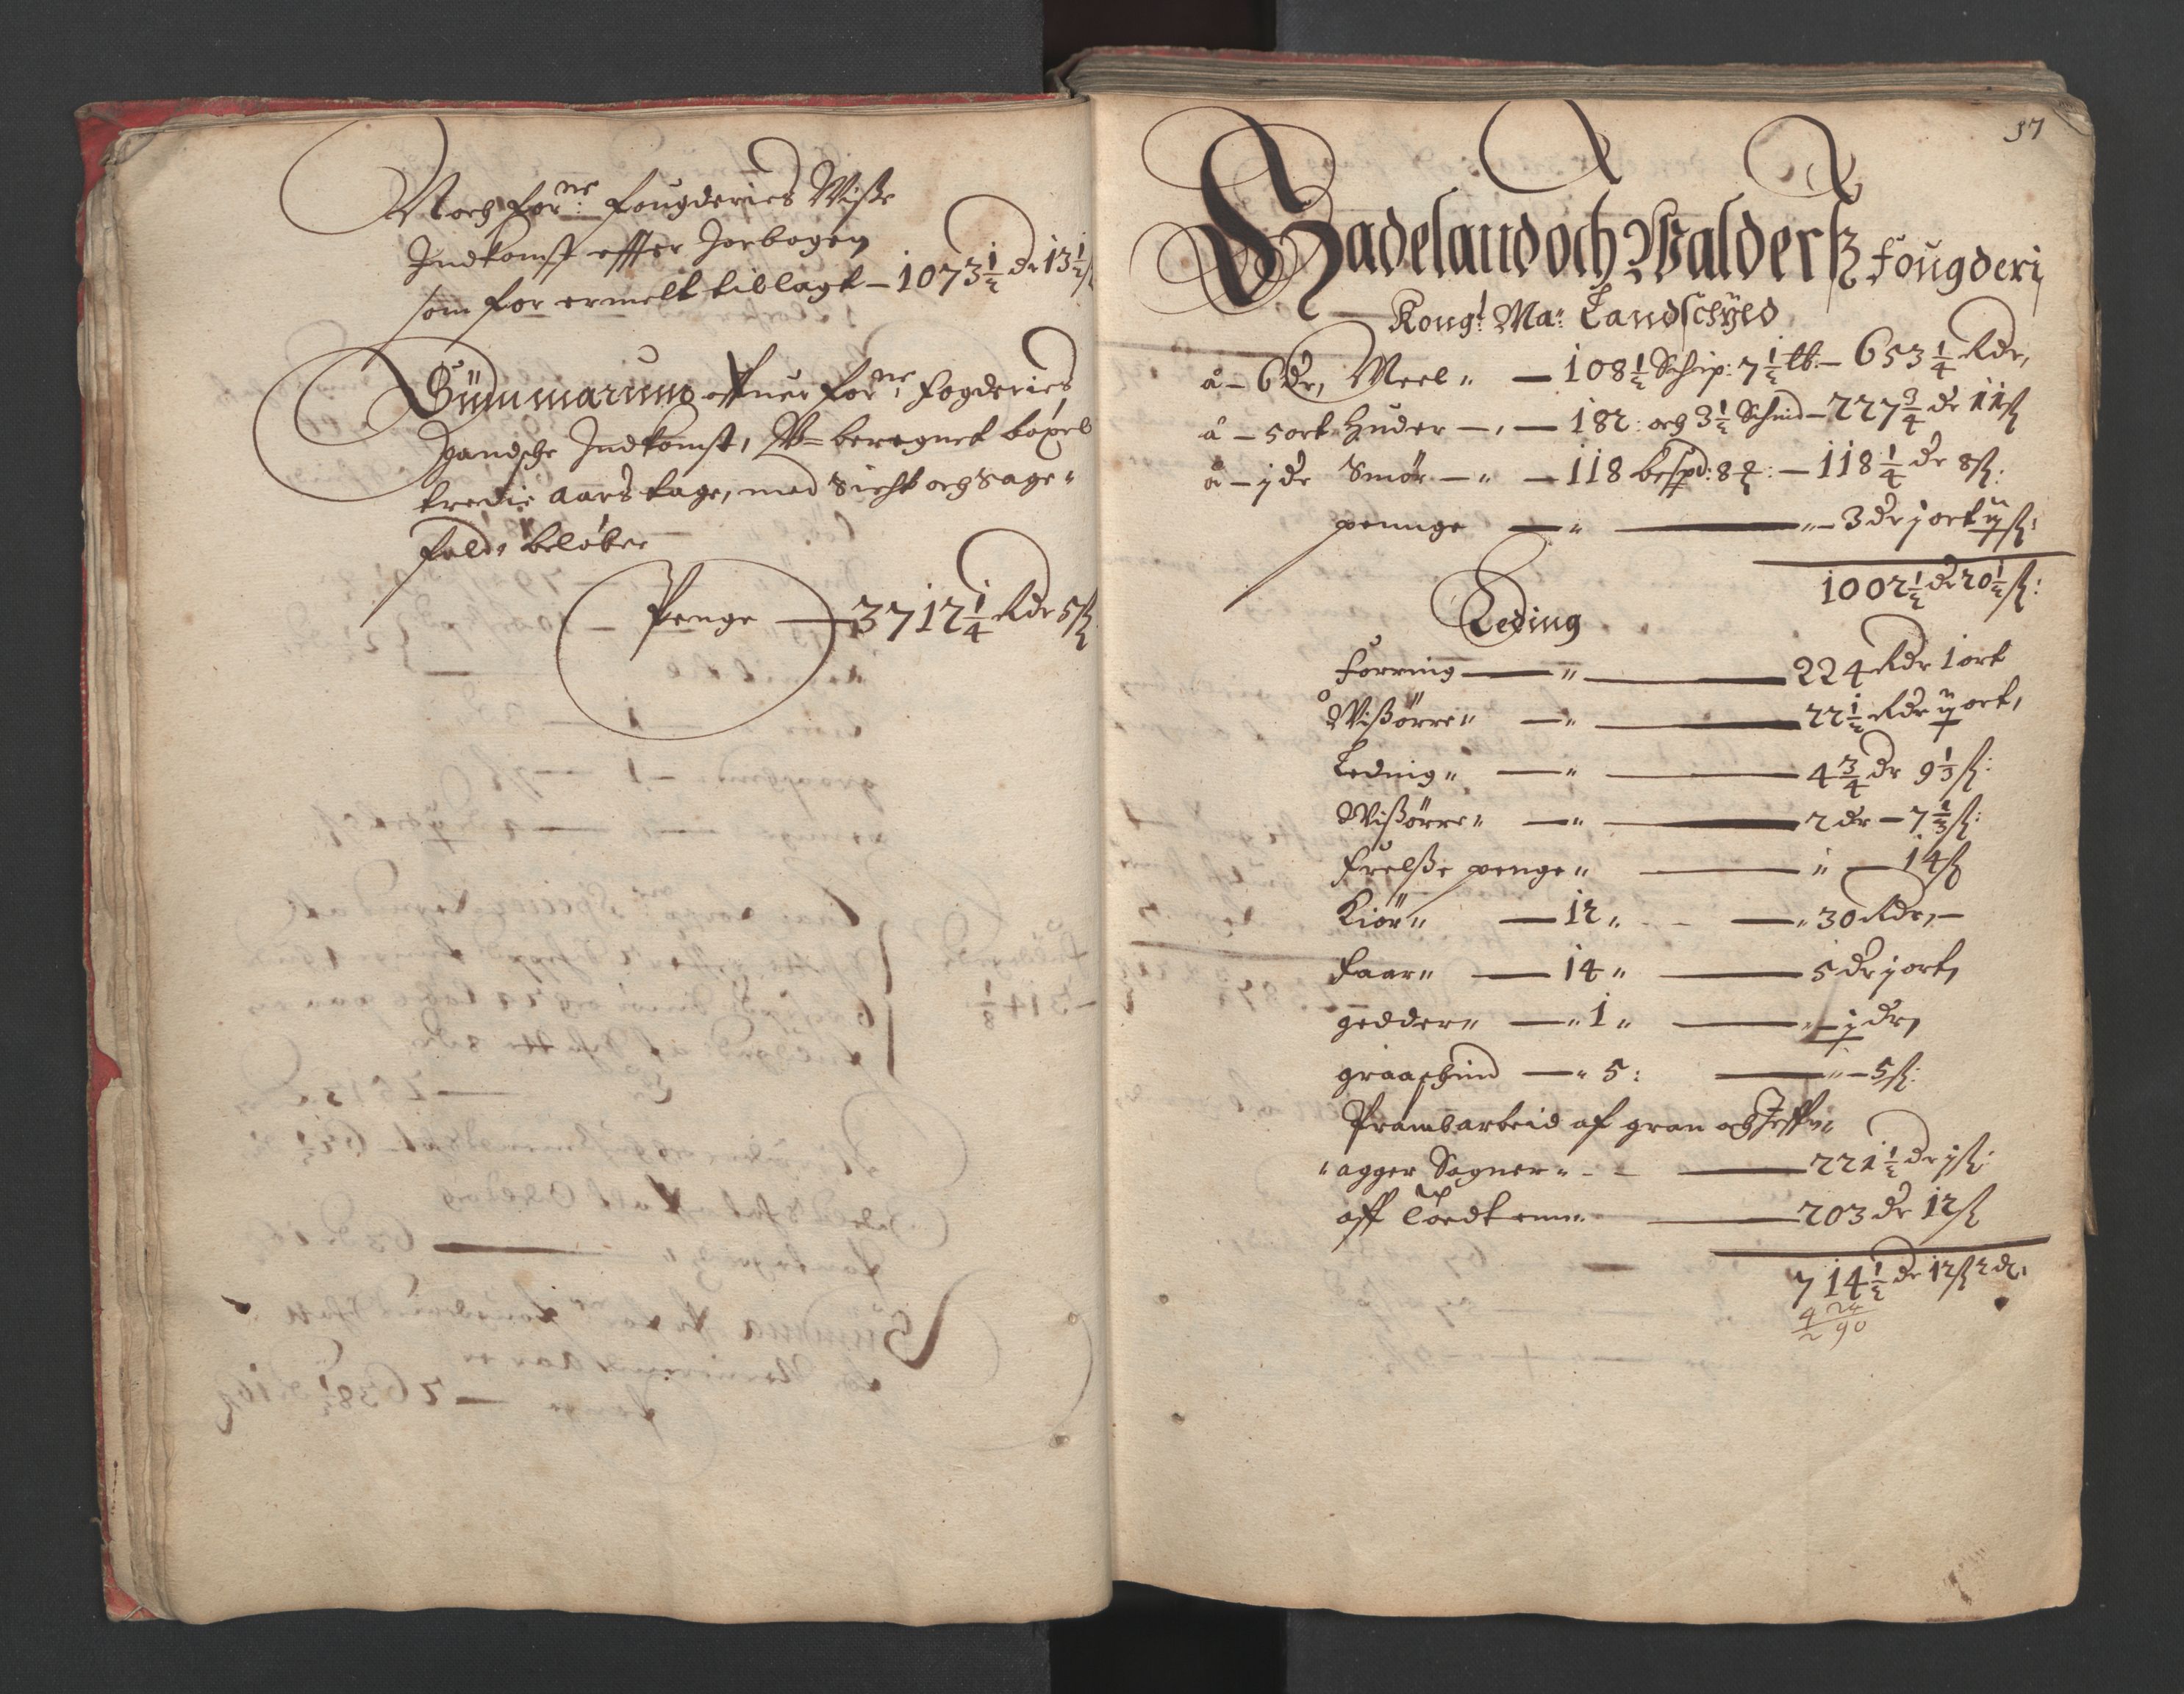 Noch for:ne fougderies Wiße
Indkomst effter Jorbogen
som for ermelt tillagt – 1073 1/2 dr 13 1/2 ß
Summarum offuer for:ne fogderies
gandsche Indkomst, W= beregnet
tredie aars tage, med Sicht och Sage=
fald, beløber
Penge — 3712 1/4 Rdr 5 ß
37
Hadeland och Walderß fougderi
Kong: Ma: Landschyld
å – 6 dr, Meel — 108 1/2 Schip: 7 1/2 lb: – 653 1/4 Rdr,
å – 5 ort Huder — 182: och 3 1/2 Schind – 227 3/4 dr 11 ß
å – j dr Smør — 118 bespd: 8 — 118 1/4 dr 8 ß:
pennge — 3 dr j ort ij ß:
1002 1/2 dr 20 1/2 ß:
Leding
Forring — 224 Rdr 1 ort
Wißørre — 22 1/2 Rdr ij ort,
Leding — 4 3/4 dr 9 1/3 ß:
Wißørre — 2 dr – 7 1/3 ß:
frelße penge — 14 ß
Kiør — 12 — 30 Rdr, –
Faar — 14 — 5 dr j ort,
gedder — 1 — j dr,
graaschind — 5: — 5 ß:
Prambarbeid af gran och Jeffn=
=agger Sogner — 221 1/2 dr j ß:
aff Toedten — 203 dr 12 ß
714 1/2 dr 12 ß 2 d:
4 24
2 90